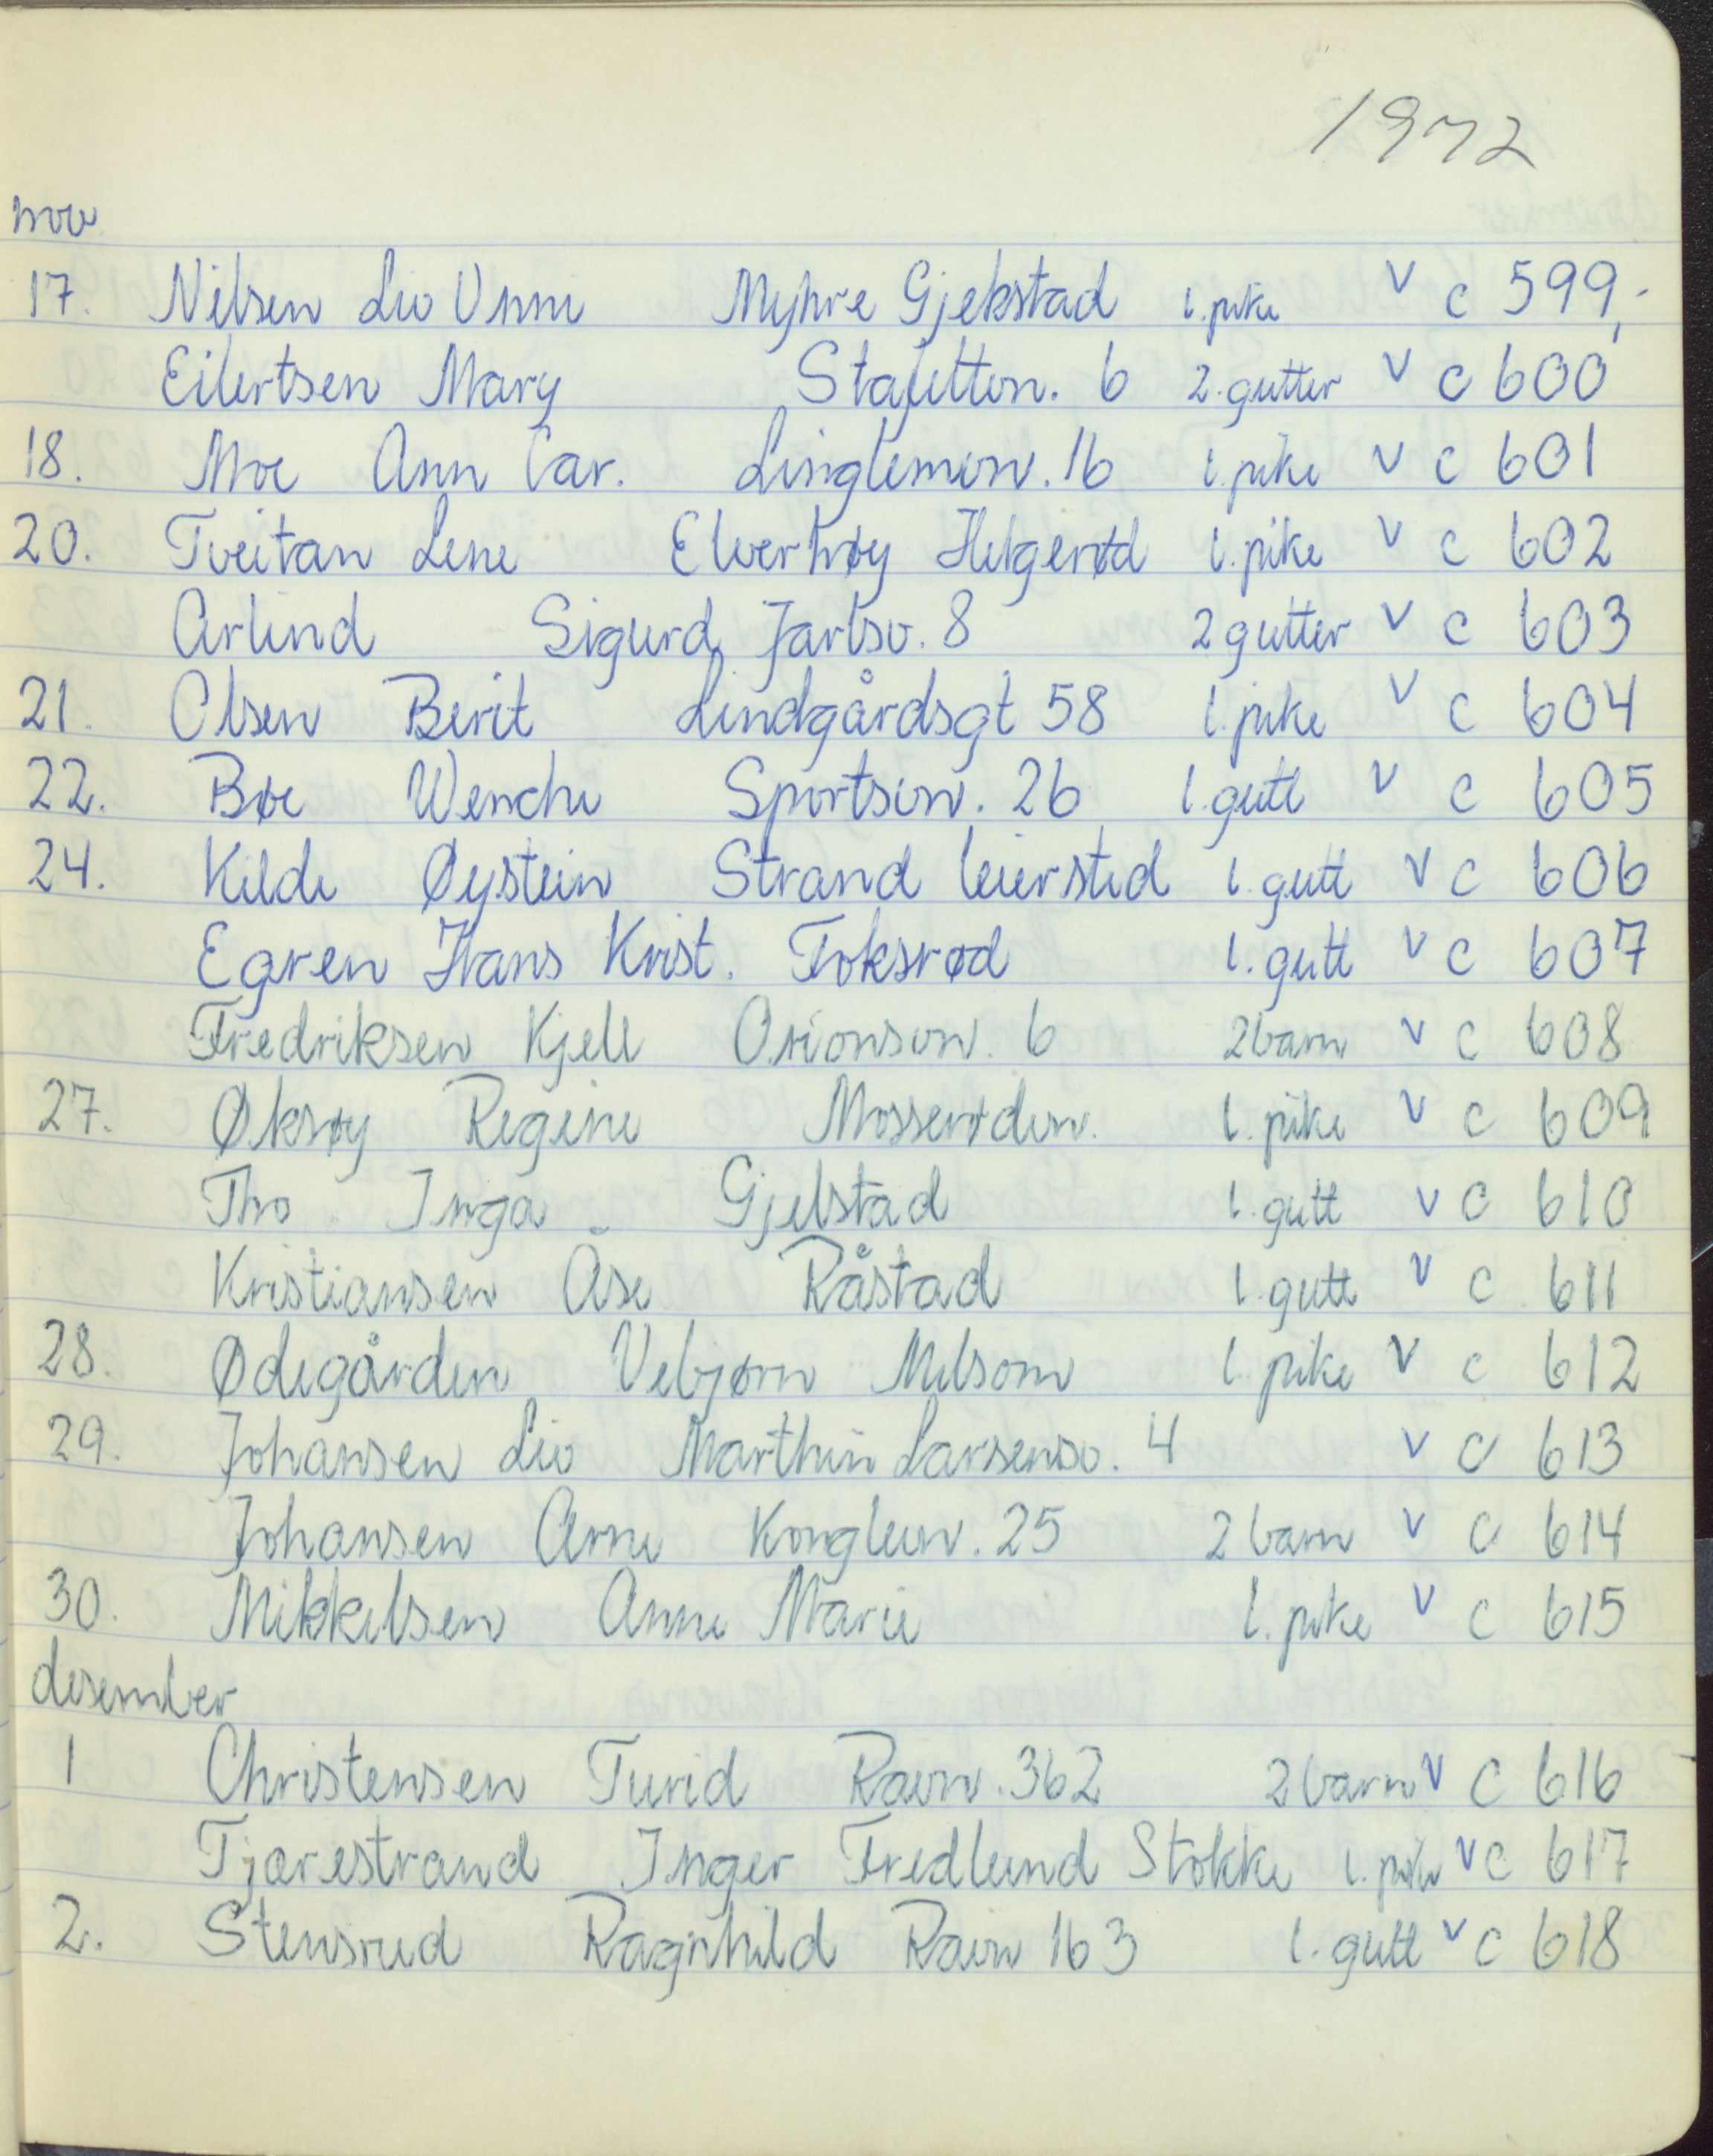 1972
nov.
17. Nilsen Liv Unni Myhre Gjekstad 1. pike v c 599,-
Eilertsen Mary Stafettvn. 6 2. gutter v c 600
18. Moe Ann Car. Linglemvn. 16 1. pike v c 601
20. Tveitan Lene Elverhøy Helgerød 1. pike v c 602
Arlind Sigurd Jarlsv. 8 2 gutter v c 603
21. Olsen Berit Lindgårdsgt 58 1. pike v c 604
22. Bøe Wenche Sportsvn. 26 1. gutt v c 605
24. Kilde Øystein Strand leirsted 1. gutt v c 606
Egren Hans Krist. Foksrød 1. gutt v c 607
Fredriksen Kjell Orionsvn. 6 2 barn v c 608
27. Øksnøy Regine Mosserødvn. 1. pike v c 609
Tho Inga Gjelstad 1. gutt v c 610
Kristiansen Åse Råstad 1. gutt v c 611
28. Ødegården Vebjørn Melsom 1. pike v c 612
29. Johansen Liv Marthin Larsensv. 4 v c 613
Johansen Anne Konglevn. 25 2 barn v c 614
30. Mikkelsen Anne Marie 1. pike v c 615
desember
1 Christensen Turid Ravn. 362 2 barn v c 616
Tjærestrand Inger Fredlund Stokke 1. pike v c 617
2. Stensrud Ragnhild Ravn 163 1. gutt v c 618